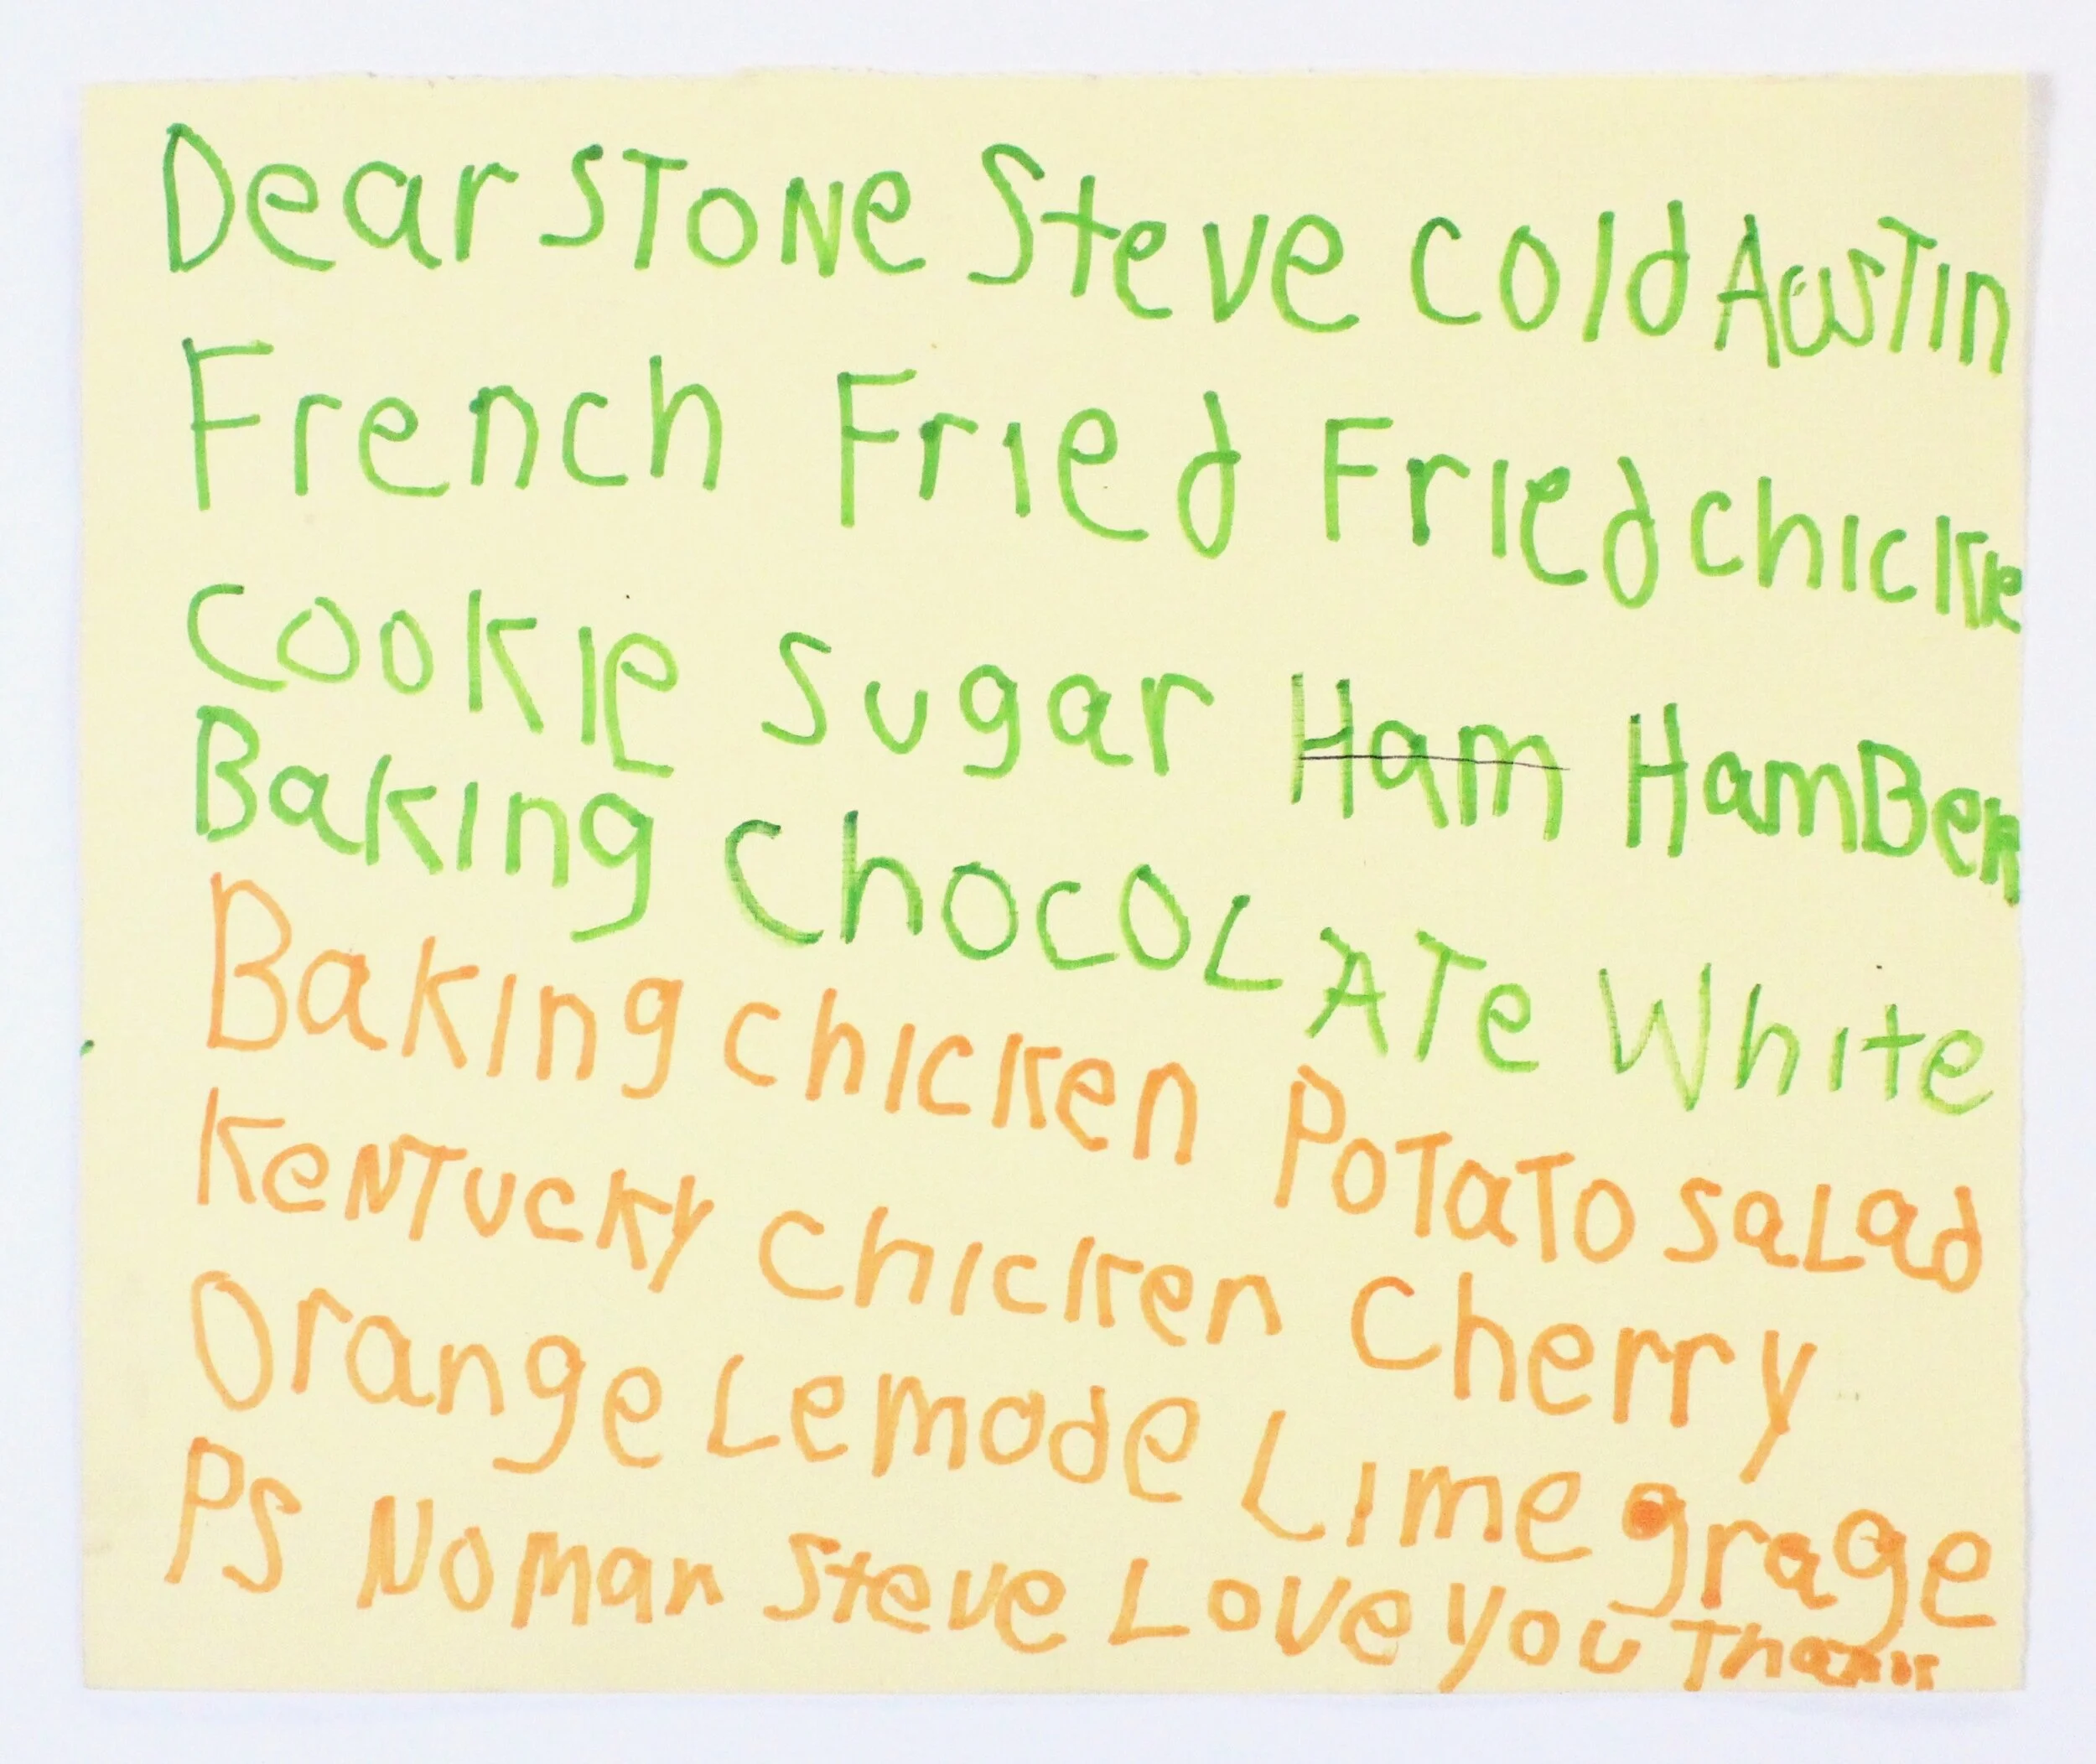 Dear STONe Steve cold AusTin
French Fried Fried chicke
cookie Sugar Ham HamBer
Baking ChocoLATe White
Baking chicken PoTaTo saLad
KeNTucky chicken Cherry
Orange Lemode Lime grage
PS Noman Steve Love you Thank